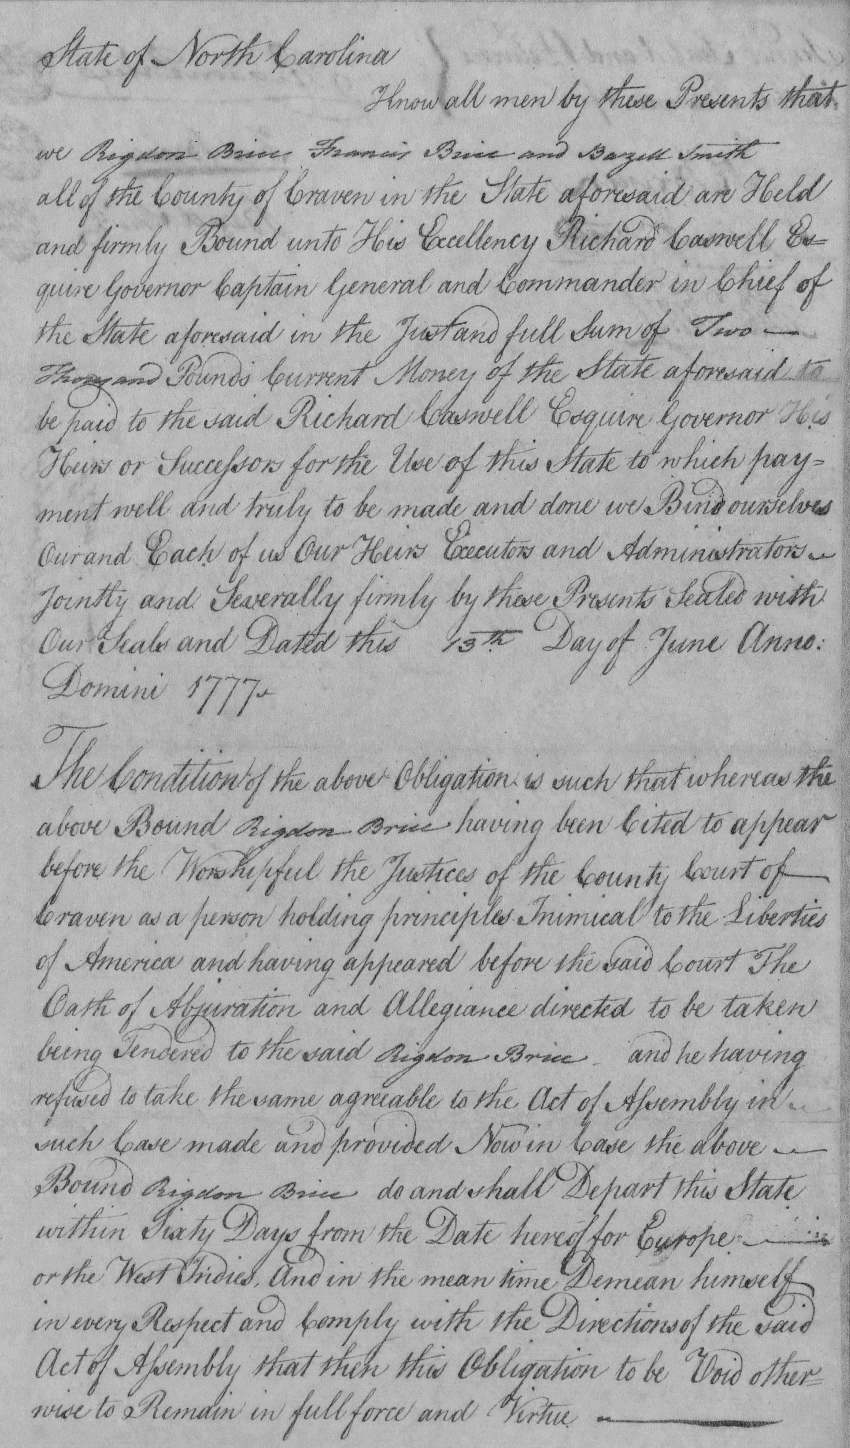 State of North Carolina
Know all men by these Presents that
we Rigdon Brice Francis Brice and Bazell Smith
all of the County of Craven in the State aforesaid are Held
and firmly Bound unto His Excellency Richard Caswell Es=
quire Governor Captain General and Commander in Chief of
the State aforesaid in the Just and full Sum of Two
Thousand Pounds Current Money of the State aforesaid to
be paid to the said Richard Caswell Esquire Governor His
Heirs or Successors for the Use of this State to which pay=
ment well and truly to be made and done we Bind ourselves
Our and Each of us Our Heirs Executors and Administrators
Jointly and Severally firmly by these Presents Sealed with
Our Seals and Dated this 13th Day of June Anno:
Domini 1777
The Condition of the above Obligation is such that whereas the
above Bound Rigdon Brice having been Cited to appear
before the Worshipful the Justices of the County Court of
Craven as a person holding principles Inimical to the Liberties
of America and having appeared before the said Court The
Oath of Abjuration and Allegiance directed to be taken
being Tendered to the said Rigdon Brice and he having
refused to take the same agreeable to the Act of Assembly in
such Case made and provided Now in Case the above
Bound Rigdon Brice do and shall Depart this State
within Sixty Days from the Date hereof for Europe
or the West Indies, And in the mean time Demean himself
in every Respect and Comply with the Directions of the said
Act of Assembly that then this Obligation to be Void other=
wise to Remain in full force and Virtue